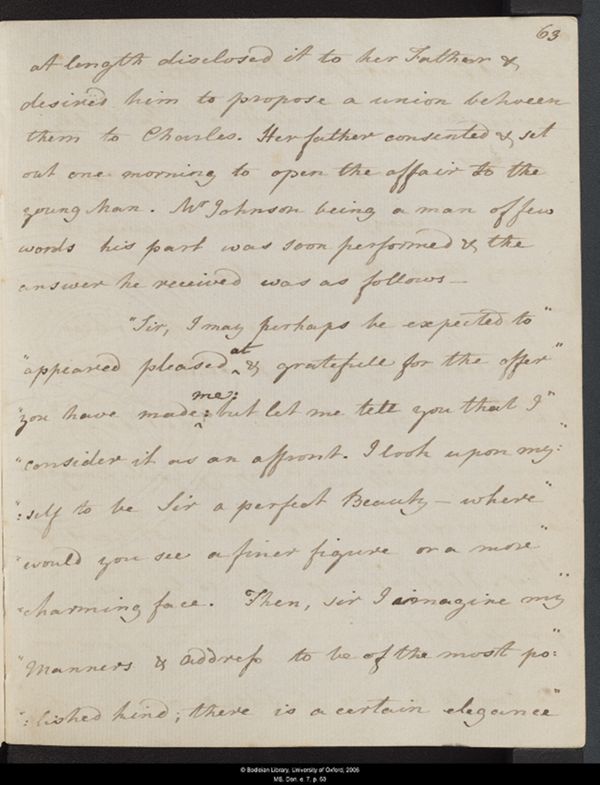 63
at length disclosed it to her Father &
desired him to propose a union between
them to Charles. Her father consented & set
out one morning to open the affair to the
young Man. Mr Johnson being a man of few
words his part was soon performed & the
answer he received was as follows—
"Sir, I may perhaps be expected to"
at
"appeared pleased & gratefull for the offer"
me:
"you have made: but let me tell you that I"
"consider it as an affront. I look upon my:"
":self to be Sir a perfect Beauty — where"
"would you see a finer figure or a more"
"charming face. Then, sir I imagine my"
"Manners & Address to be of the most po:"
":lished kind; there is a certain elegance"
© Bodleian Library, University of Oxford, 2006
MS. Don. e. 7, p. 63